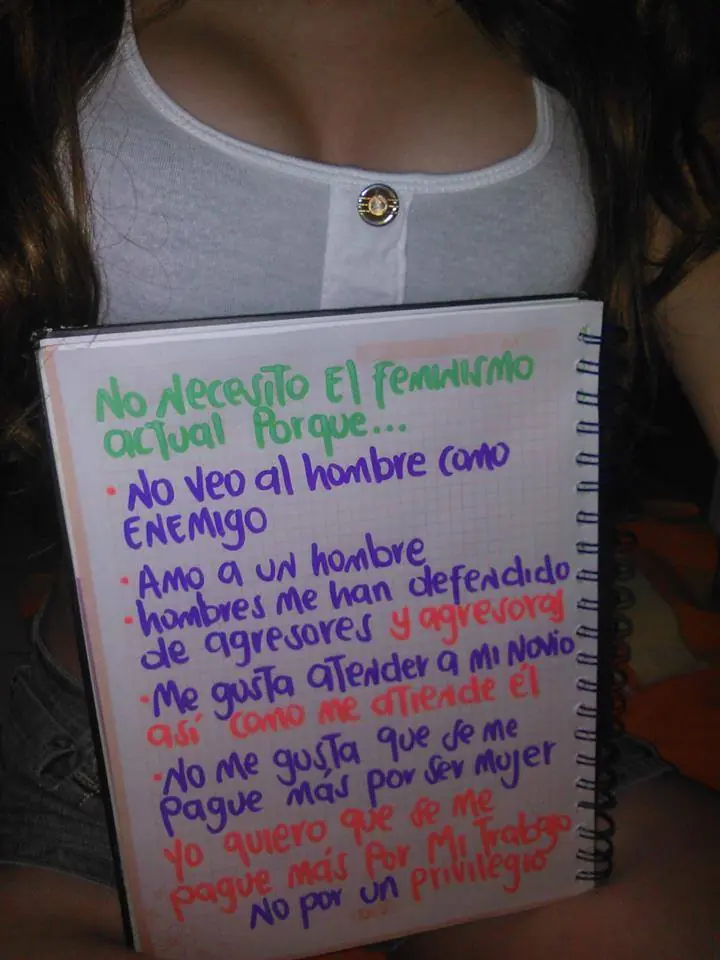 No Necesito El feminismo
actual Porque...
• No veo al hombre como
ENEMigo
• AMo a uN hombre
• hombres Me han defeNdido
de agresores y agresoras
• Me gusta atender a Mi Novio
así como me atiende él
• No Me gusta que se me
pague más por ser Mujer
Yo quiero que se me
pague más Por Mi Trabajo
No por un privilegio